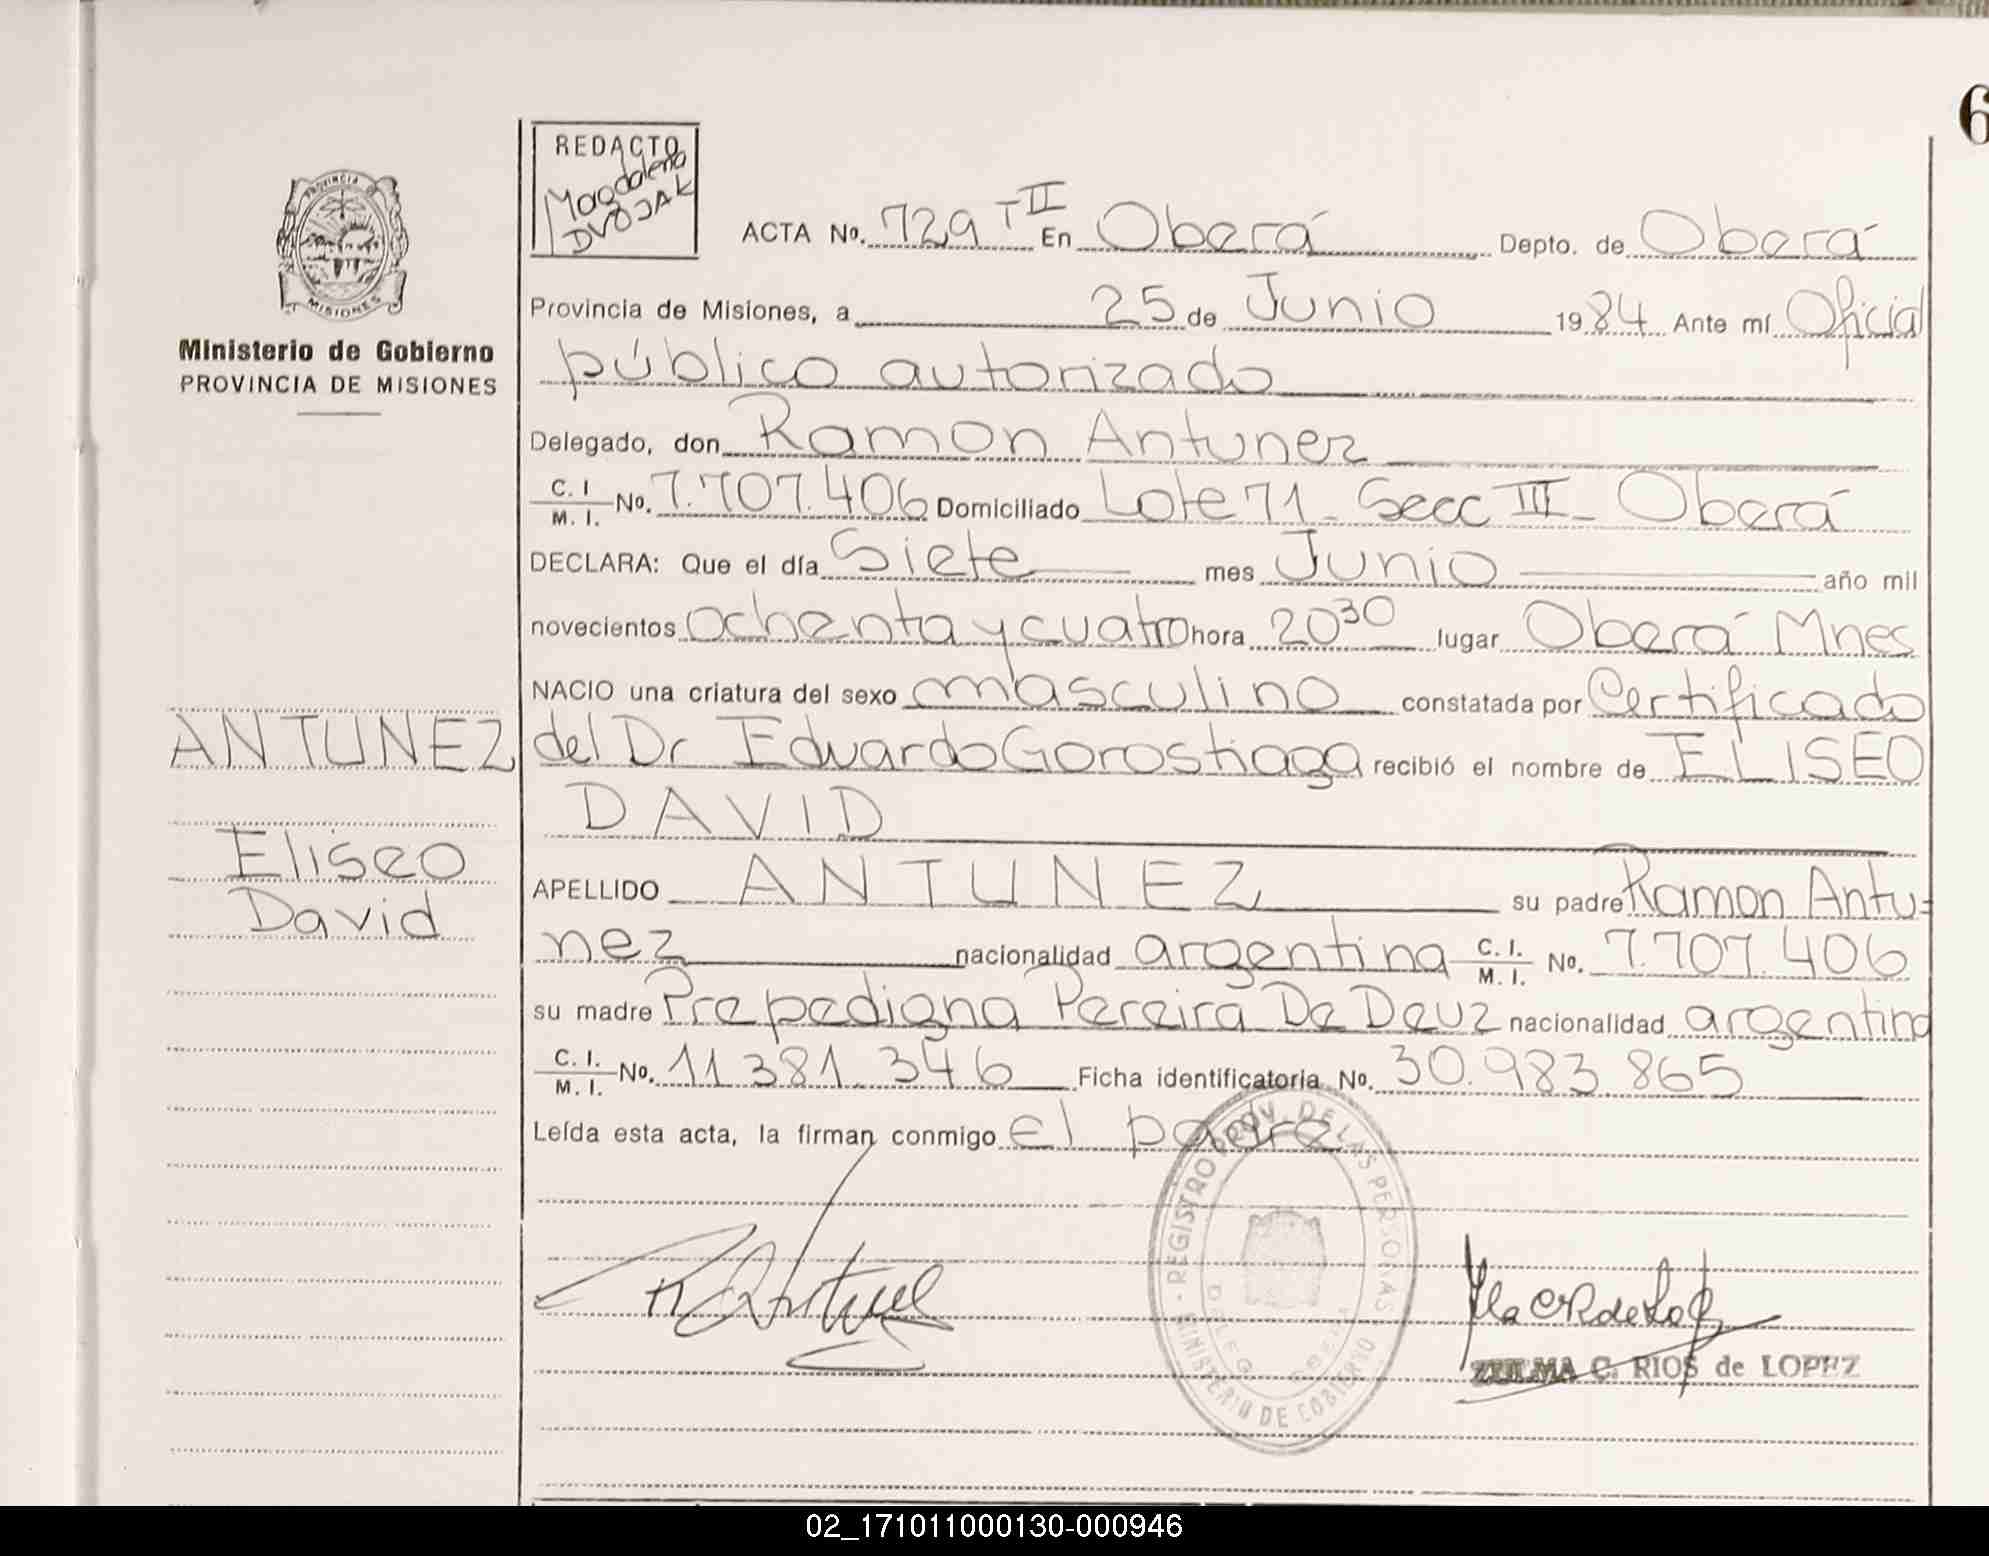 6
REDACTO
Magdalena
DVOJAK
PROVINCIA DE
MISIONES
Ministerio de Gobierno
PROVINCIA DE MISIONES
ACTA No. 729 T II En Oberá Depto. de Oberá
Provincia de Misiones, a 25 de Junio 1984 Ante mí Oficial
público autorizado
Delegado, don Ramon Antunez
C. I / M. I. No. 7.707.406 Domiciliado Lote 71 - Secc III - Oberá
DECLARA: Que el día Siete mes Junio año mil
novecientos ochenta y cuatro hora 20 30 lugar Oberá Mnes
NACIO una criatura del sexo masculino constatada por Certificado
del Dr Eduardo Gorostiaga recibió el nombre de ELISEO
DAVID
ANTUNEZ
Eliseo
David
APELLIDO ANTUNEZ su padre Ramon Antu-
nez nacionalidad argentina C. I. / M. I. No. 7.707.406
su madre Prepedigna Pereira De Deuz nacionalidad argentina
C. I. / M. I. No. 11.381.346 Ficha identificatoria No. 30.983.865
Leída esta acta, la firman conmigo el padre
REGISTRO PROV. DE LAS PERSONAS
MINISTERIO DE GOBIERNO
ZULMA C. RIOS de LOPEZ
02_171011000130-000946